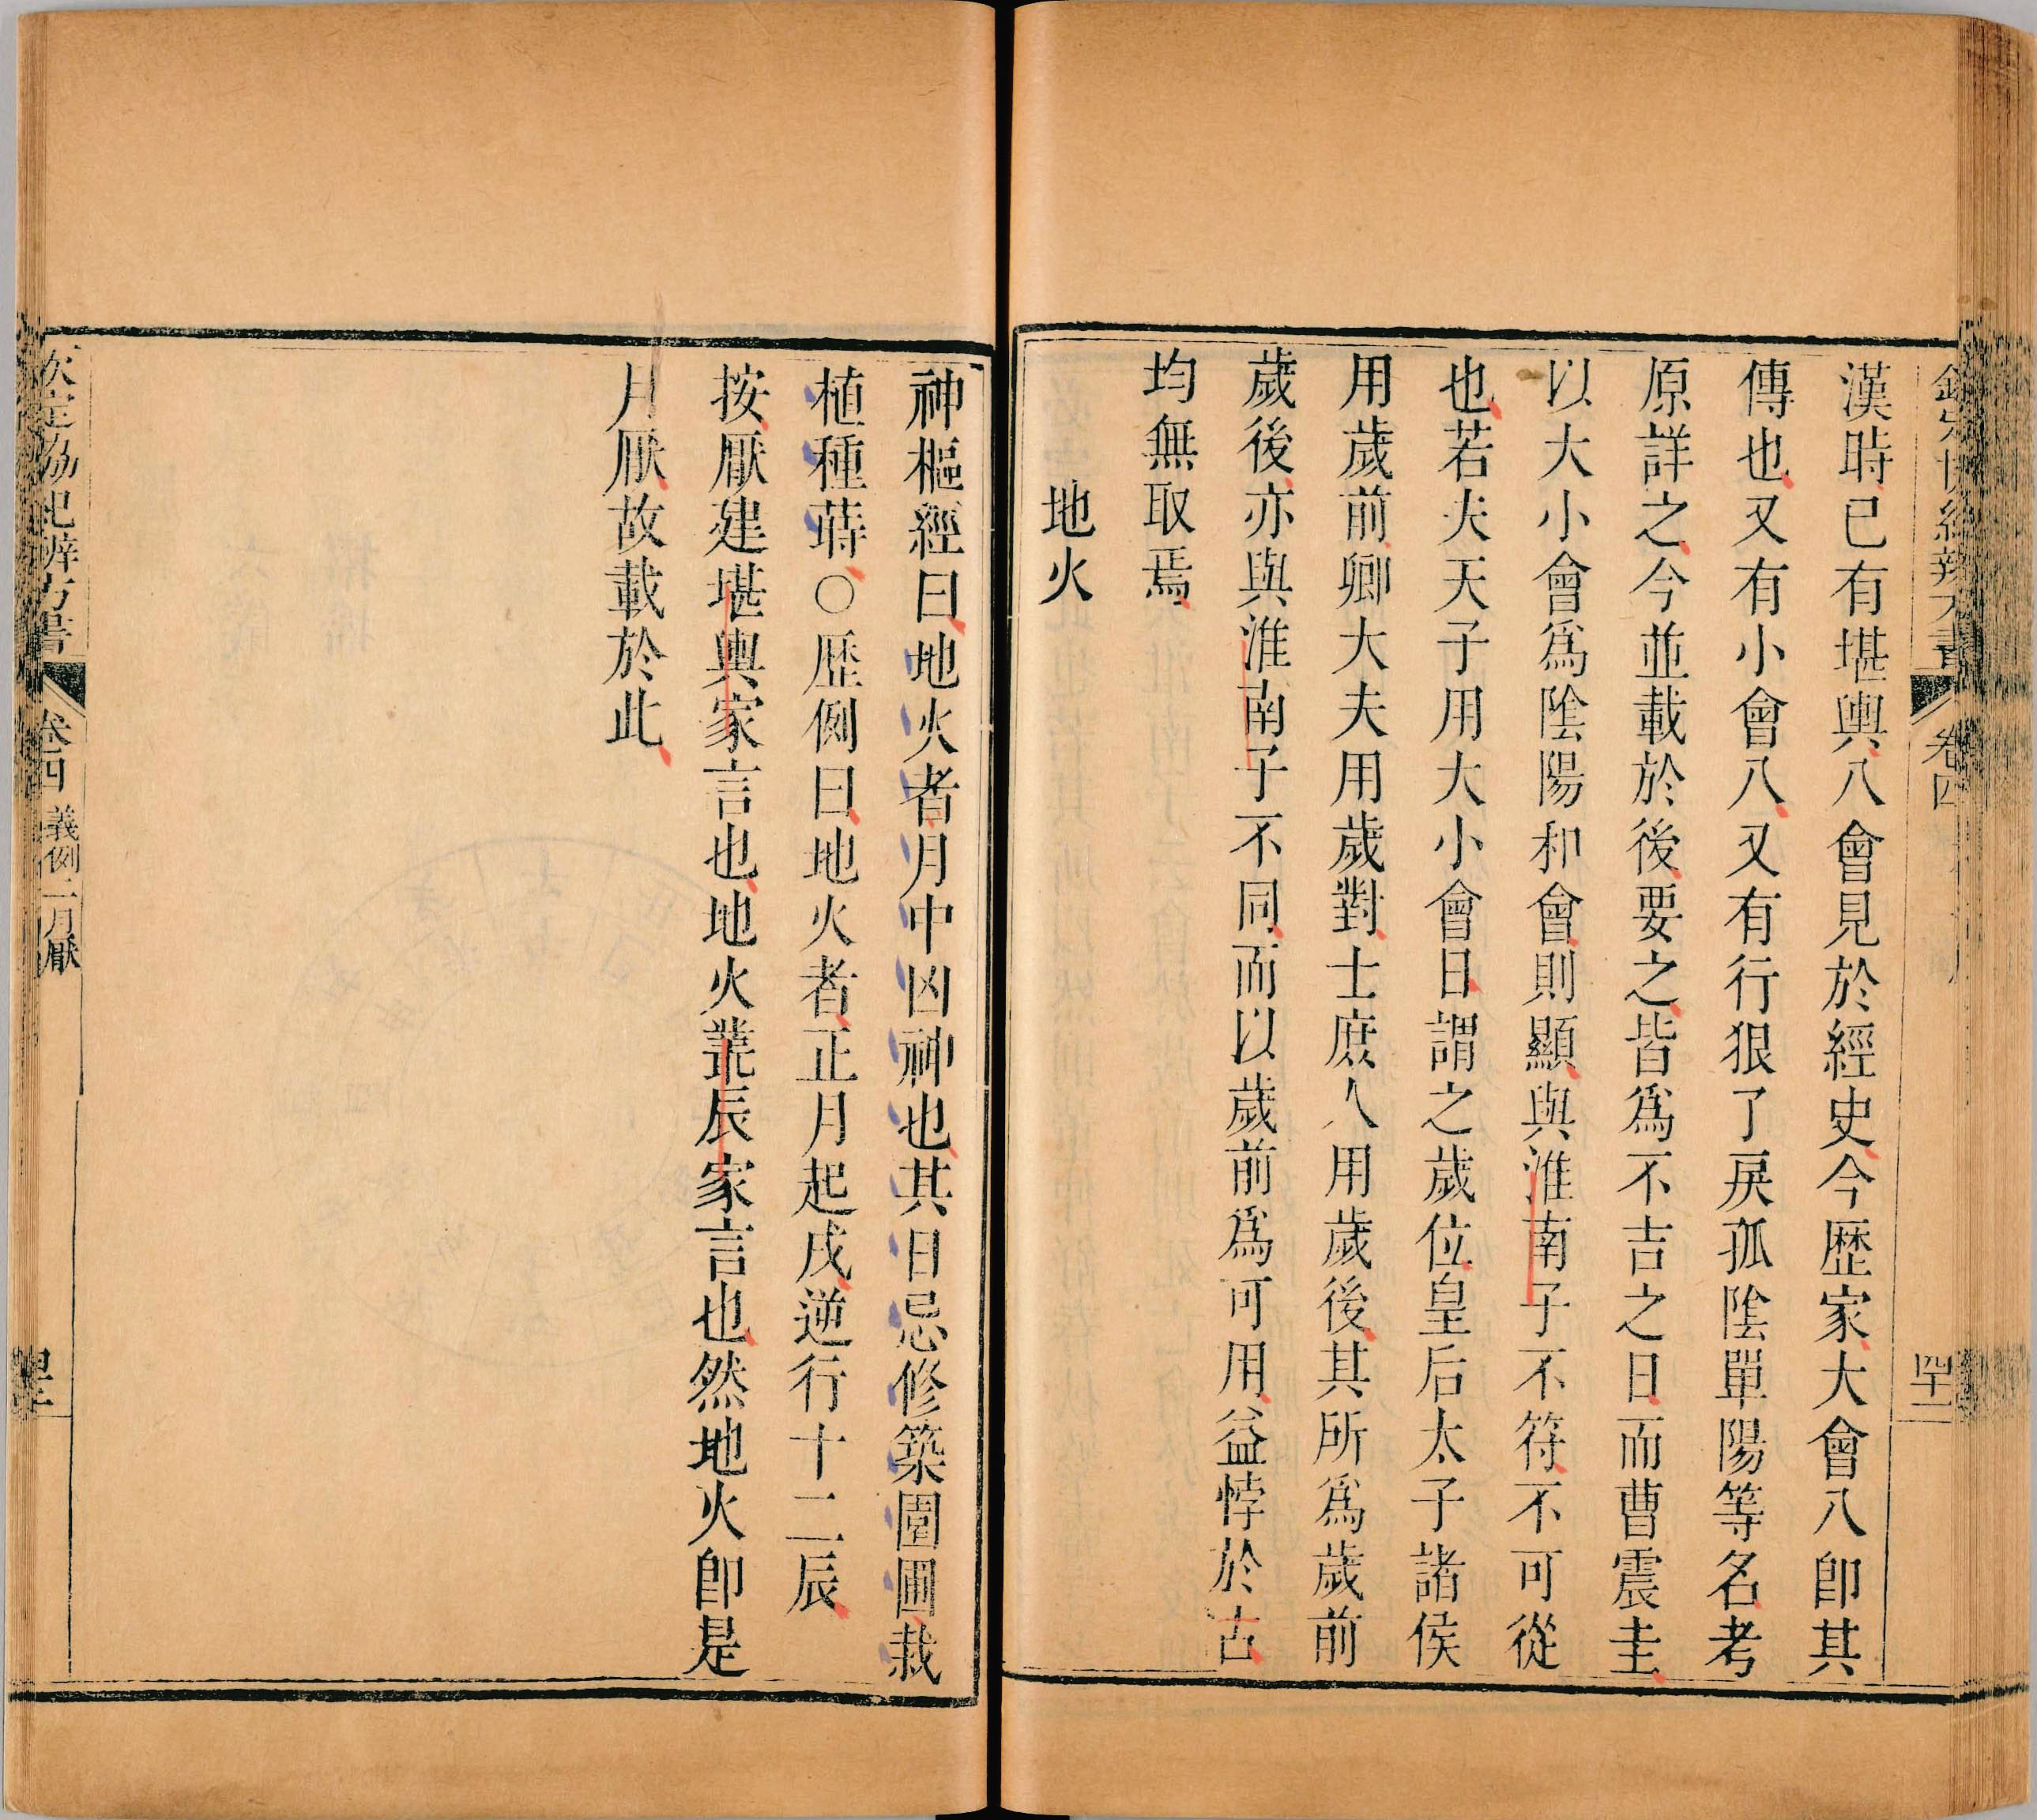 欽定協紀辨方書 卷四 四十二
漢時已有堪輿八會見於經史今歴家大會八卽其
傳也又有小會八又有行狠了戾孤陰單陽等名考
原詳之今並載於後要之皆爲不吉之日而曹震圭
以大小會爲陰陽和會則顯與淮南子不符不可從
也若夫天子用大小會日謂之歲位皇后太子諸侯
用歲前卿大夫用歲對士庶人用歲後其所爲歲前
歲後亦與淮南子不同而以歲前爲可用益悖於古
均無取焉
地火
神樞經曰地火者月中凶神也其日忌修築園圃栽
植種蒔○歴例曰地火者正月起戌逆行十二辰
按厭建堪輿家言也地火叢辰家言也然地火卽是
月厭故載於此
欽定協紀辨方書 卷四 義例二 月厭